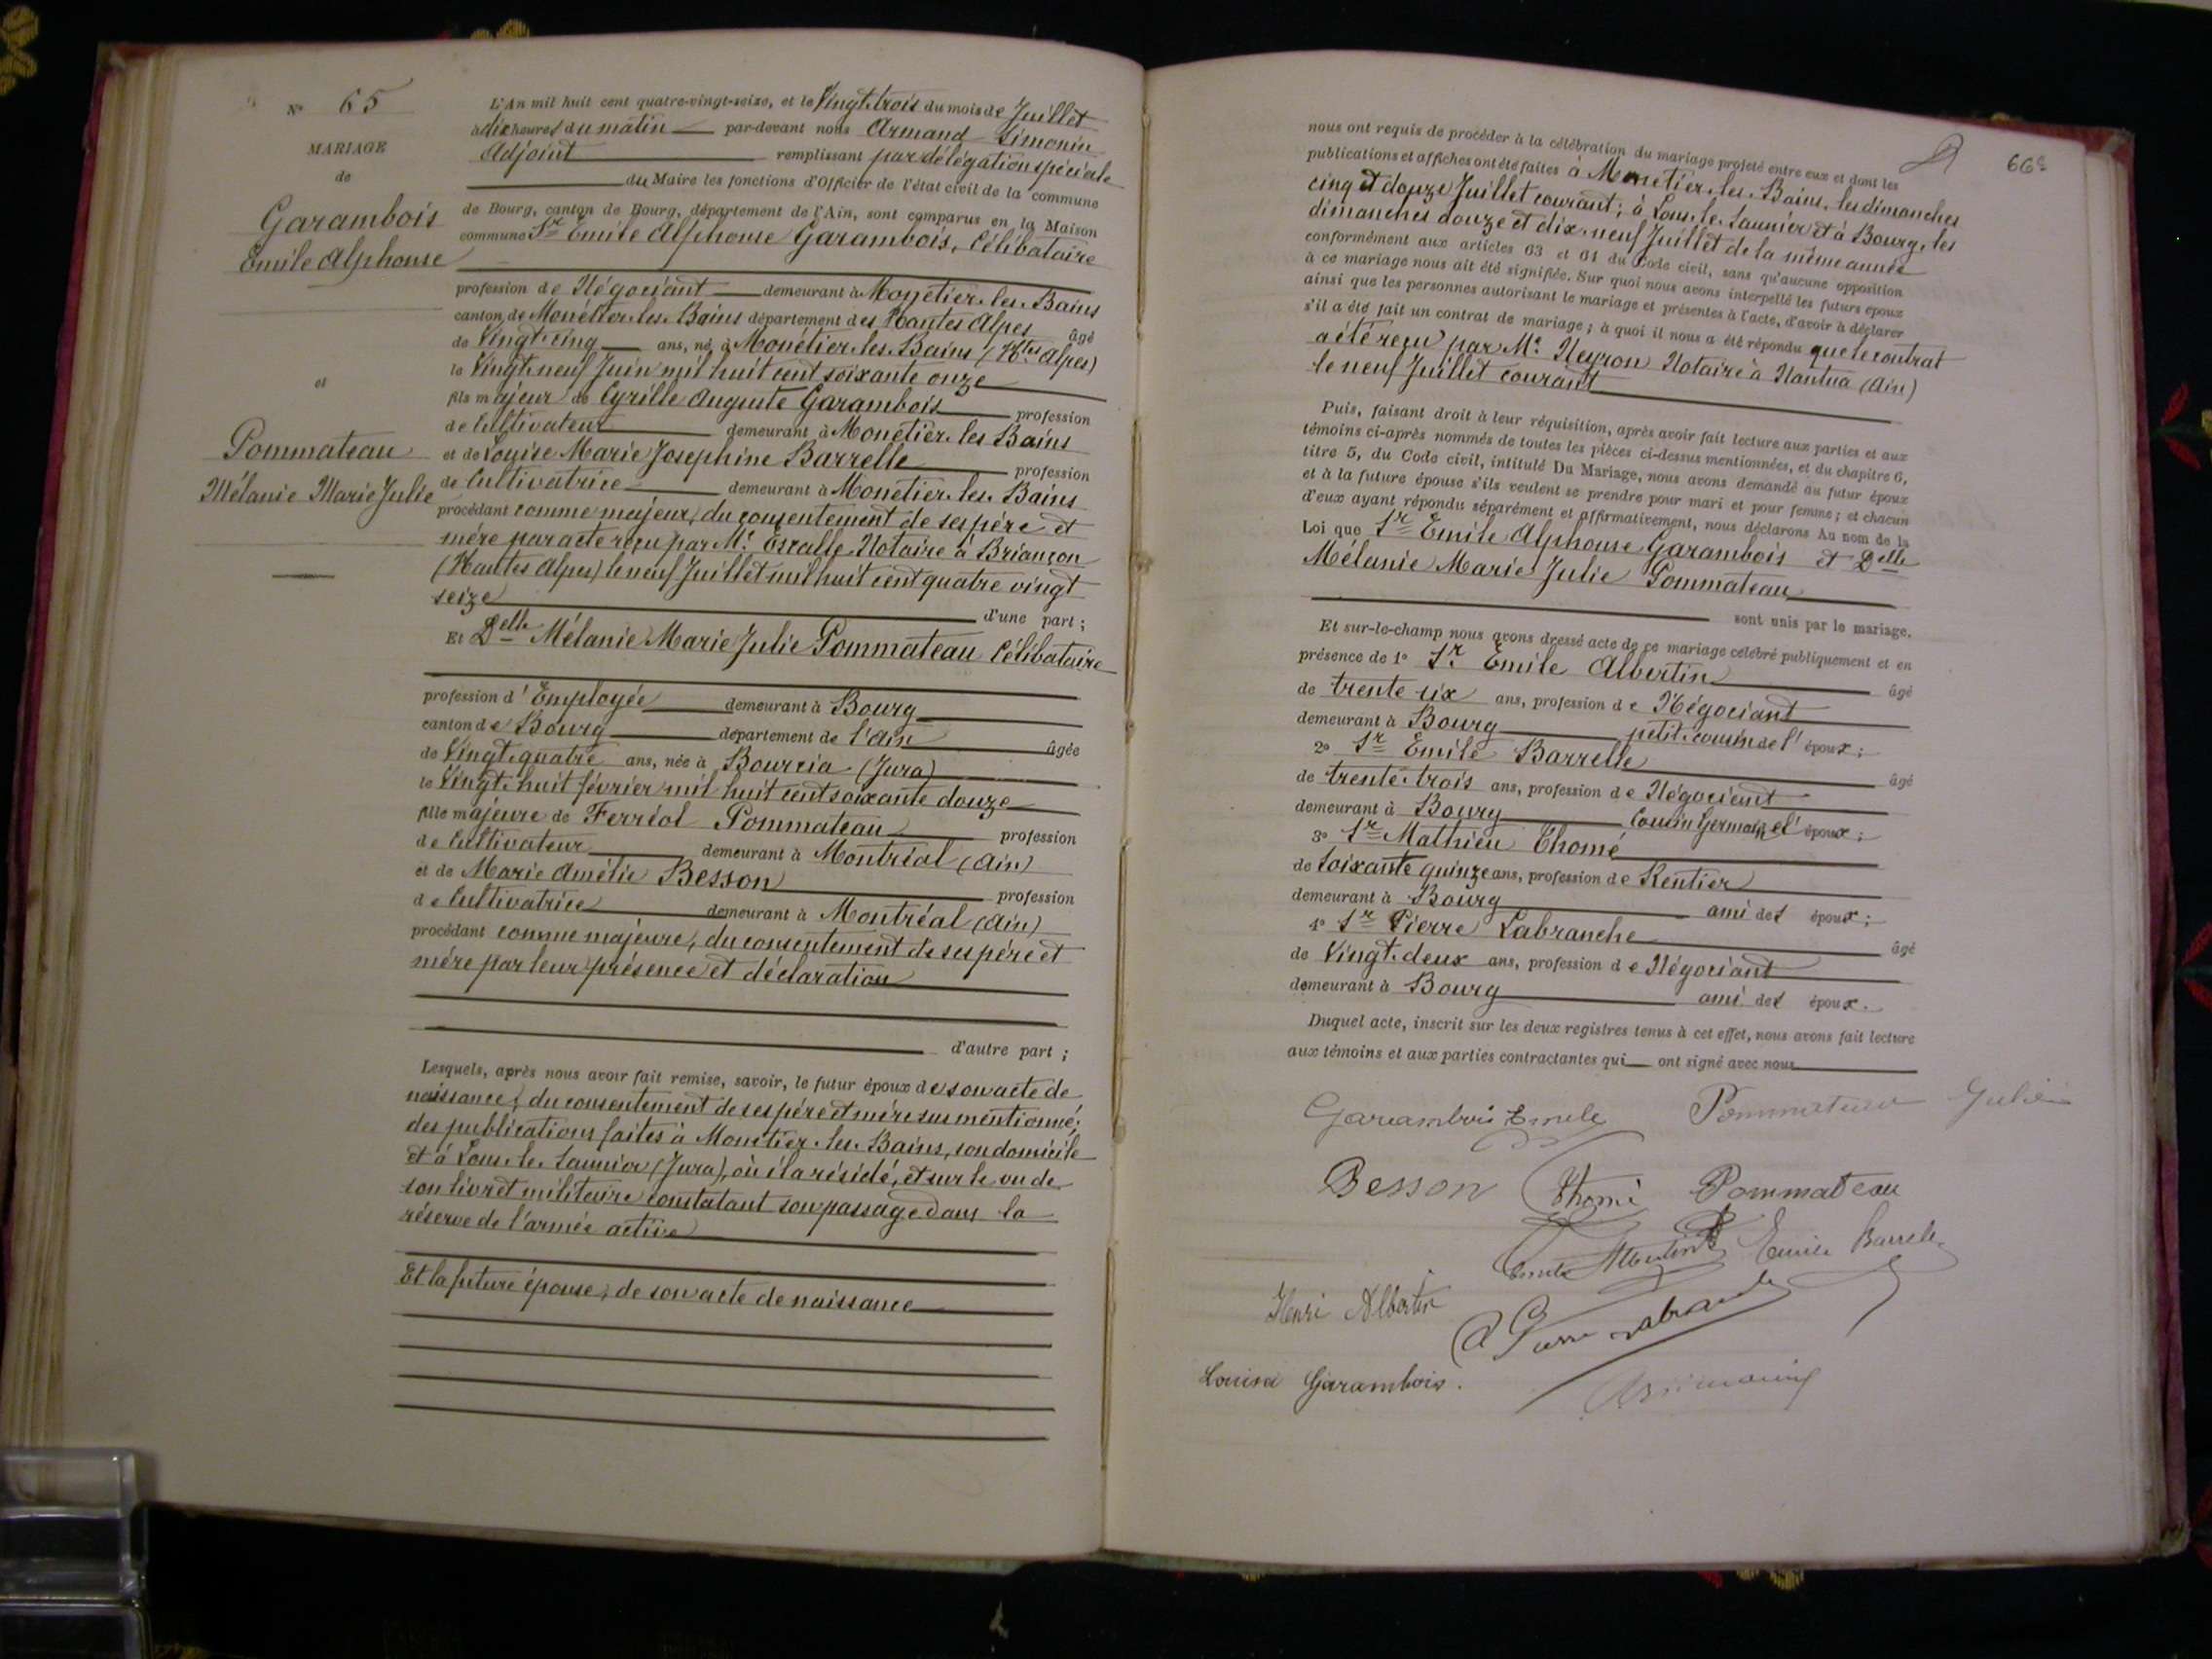 N° 65
MARIAGE
de
Garambois
Emile Alphonse
et
Pommateau
Mélanie Marie Julie
L'An mil huit cent quatre-vingt-seize, et le Vingt-trois du mois de Juillet
à dix heures du matin par-devant nous Armand Simonin
Adjoint remplissant par délégation spéciale
du Maire les fonctions d'Officier de l'état civil de la commune
de Bourg, canton de Bourg, département de l'Ain, sont comparus en la Maison
commune Sr Emile Alphonse Garambois, Célibataire
profession de Négociant demeurant à Monetier-les-Bains
canton de Monetier-les-Bains département des Hautes Alpes âgé
de Vingt-cinq ans, né à Monétier-les-Bains (Htes Alpes)
le Vingt-neuf Juin mil huit cent soixante onze
fils majeur de Cyrille Auguste Garambois profession
de Cultivateur demeurant à Monetier-les Bains
et de Louise Marie Josephine Barrelle profession
de Cultivatrice demeurant à Monetier-les-Bains
procédant comme majeur, du consentement de ses père et
mère par acte reçu par Me Escalle Notaire à Briançon
(Hautes Alpes) le neuf Juillet mil huit cent quatre vingt
seize d'une part ;
Et Delle Mélanie Marie Julie Pommateau Célibataire
profession d'Employée demeurant à Bourg
canton de Bourg département de l'Ain âgée
de Vingt-quatre ans, née à Bourcia (Jura)
le Vingt-huit février mil huit cent soixante douze
fille majeure de Ferréol Pommateau profession
de Cultivateur demeurant à Montréal (Ain)
et de Marie Amélie Besson profession
de Cultivatrice demeurant à Montréal (Ain)
procédant comme majeure, du consentement de ses père et
mère par leur présence et déclaration
d'autre part ;
Lesquels, après nous avoir fait remise, savoir, le futur époux de son acte de
naissance ; du consentement de ses père et mère sus mentionné ;
des publications faites à Monetier-les-Bains, son domicile
et à Lons-le-Saunier (Jura), où il a résidé, et sur le vu de
son livret militaire constatant son passage dans la
réserve de l'armée active
Et la future épouse, de son acte de naissance
66e
nous ont requis de procéder à la célébration du mariage projeté entre eux et dont les
publications et affiches ont été faites à Monetier-les-Bains, les dimanches
cinq et douze Juillet courant ; à Lons-le-Saunier et à Bourg, les
dimanches douze et dix-neuf Juillet de la même année
conformément aux articles 63 et 64 du Code civil, sans qu'aucune opposition
à ce mariage nous ait été signifiée. Sur quoi nous avons interpellé les futurs époux
ainsi que les personnes autorisant le mariage et présentes à l'acte, d'avoir à déclarer
s'il a été fait un contrat de mariage ; à quoi il nous a été répondu que le contrat
a été reçu par Me Neyron Notaire à Nantua (Ain)
le neuf Juillet courant
Puis, faisant droit à leur réquisition, après avoir fait lecture aux parties et aux
témoins ci-après nommés de toutes les pièces ci-dessus mentionnées, et du chapitre 6,
titre 5, du Code civil, intitulé Du Mariage, nous avons demandé au futur époux
et à la future épouse s'ils veulent se prendre pour mari et pour femme ; et chacun
d'eux ayant répondu séparément et affirmativement, nous déclarons Au nom de la
Loi que Sr Emile Alphonse Garambois et Delle
Mélanie Marie Julie Pommateau
sont unis par le mariage.
Et sur-le-champ nous avons dressé acte de ce mariage célébré publiquement et en
présence de 1° Sr Emile Albertin âgé
de trente six ans, profession de Négociant
demeurant à Bourg petit-cousin de l'époux ;
2° Sr Emile Barrelle âgé
de trente-trois ans, profession de Négociant
demeurant à Bourg Cousin Germain de l'époux ;
3° Sr Mathieu Thomé
de soixante quinze ans, profession de Rentier
demeurant à Bourg ami des époux ;
4° Sr Pierre Labranche âgé
de Vingt-deux ans, profession de Négociant
demeurant à Bourg ami des époux.
Duquel acte, inscrit sur les deux registres tenus à cet effet, nous avons fait lecture
aux témoins et aux parties contractantes qui ont signé avec nous
Garambois Emile Pommateau Julie
Besson Thomé Pommateau
Emile Albertin Emile Barrelle
Henri Albertin
Pierre Labranche
Louise Garambois.
ASimonin